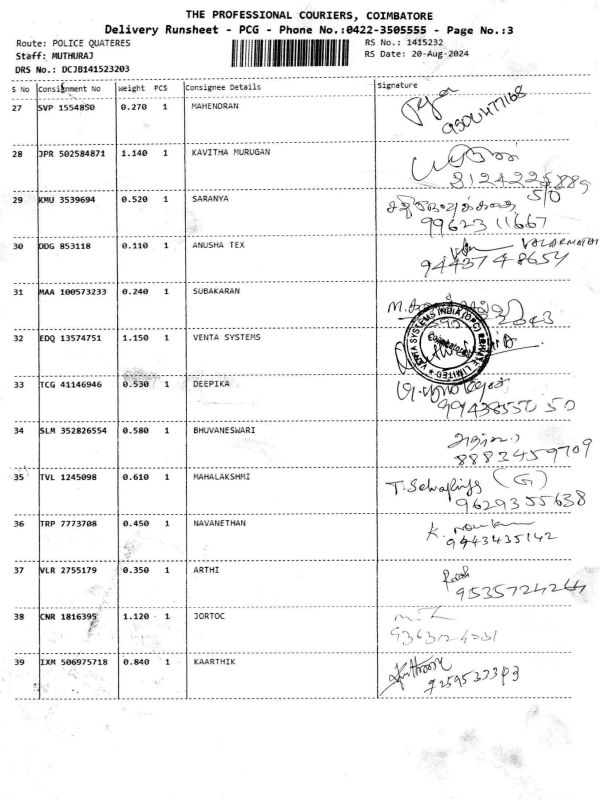 THE PROFESSIONAL COURIERS, COIMBATORE
Delivery Runsheet - PCG - Phone No.:0422-3505555 - Page No.:3
Route: POLICE QUATERES RS No.: 1415232
Staff: MUTHURAJ RS Date: 20-Aug-2024
DRS No.: DCJB141523203
S No Consignment No Weight PCS Consignee Details Signature
27 SVP 1554850 0.270 1 MAHENDRAN
28 JPR 502584871 1.140 1 KAVITHA MURUGAN
29 KMU 3539694 0.520 1 SARANYA S/O
9962311667
30 DDG 853118 0.110 1 ANUSHA TEX VALARMATHI
9443748654
31 MAA 100573233 0.240 1 SUBAKARAN
32 EDQ 13574751 1.150 1 VENTA SYSTEMS
VENTA SYSTEMS INDIA (OPC) PRIVATE LIMITED
Coimbatore
33 TCG 41146946 0.530 1 DEEPIKA
9943855050
34 SLM 352826554 0.580 1 BHUVANESWARI
8883459709
35 TVL 1245098 0.610 1 MAHALAKSHMI T. Selva (G)
9629355638
36 TRP 7773708 0.450 1 NAVANETHAN K.
9943435142
37 VLR 2755179 0.350 1 ARTHI
9535724244
38 CNR 1816395 1.120 1 JORTOC
39 IXM 506975718 0.840 1 KAARTHIK